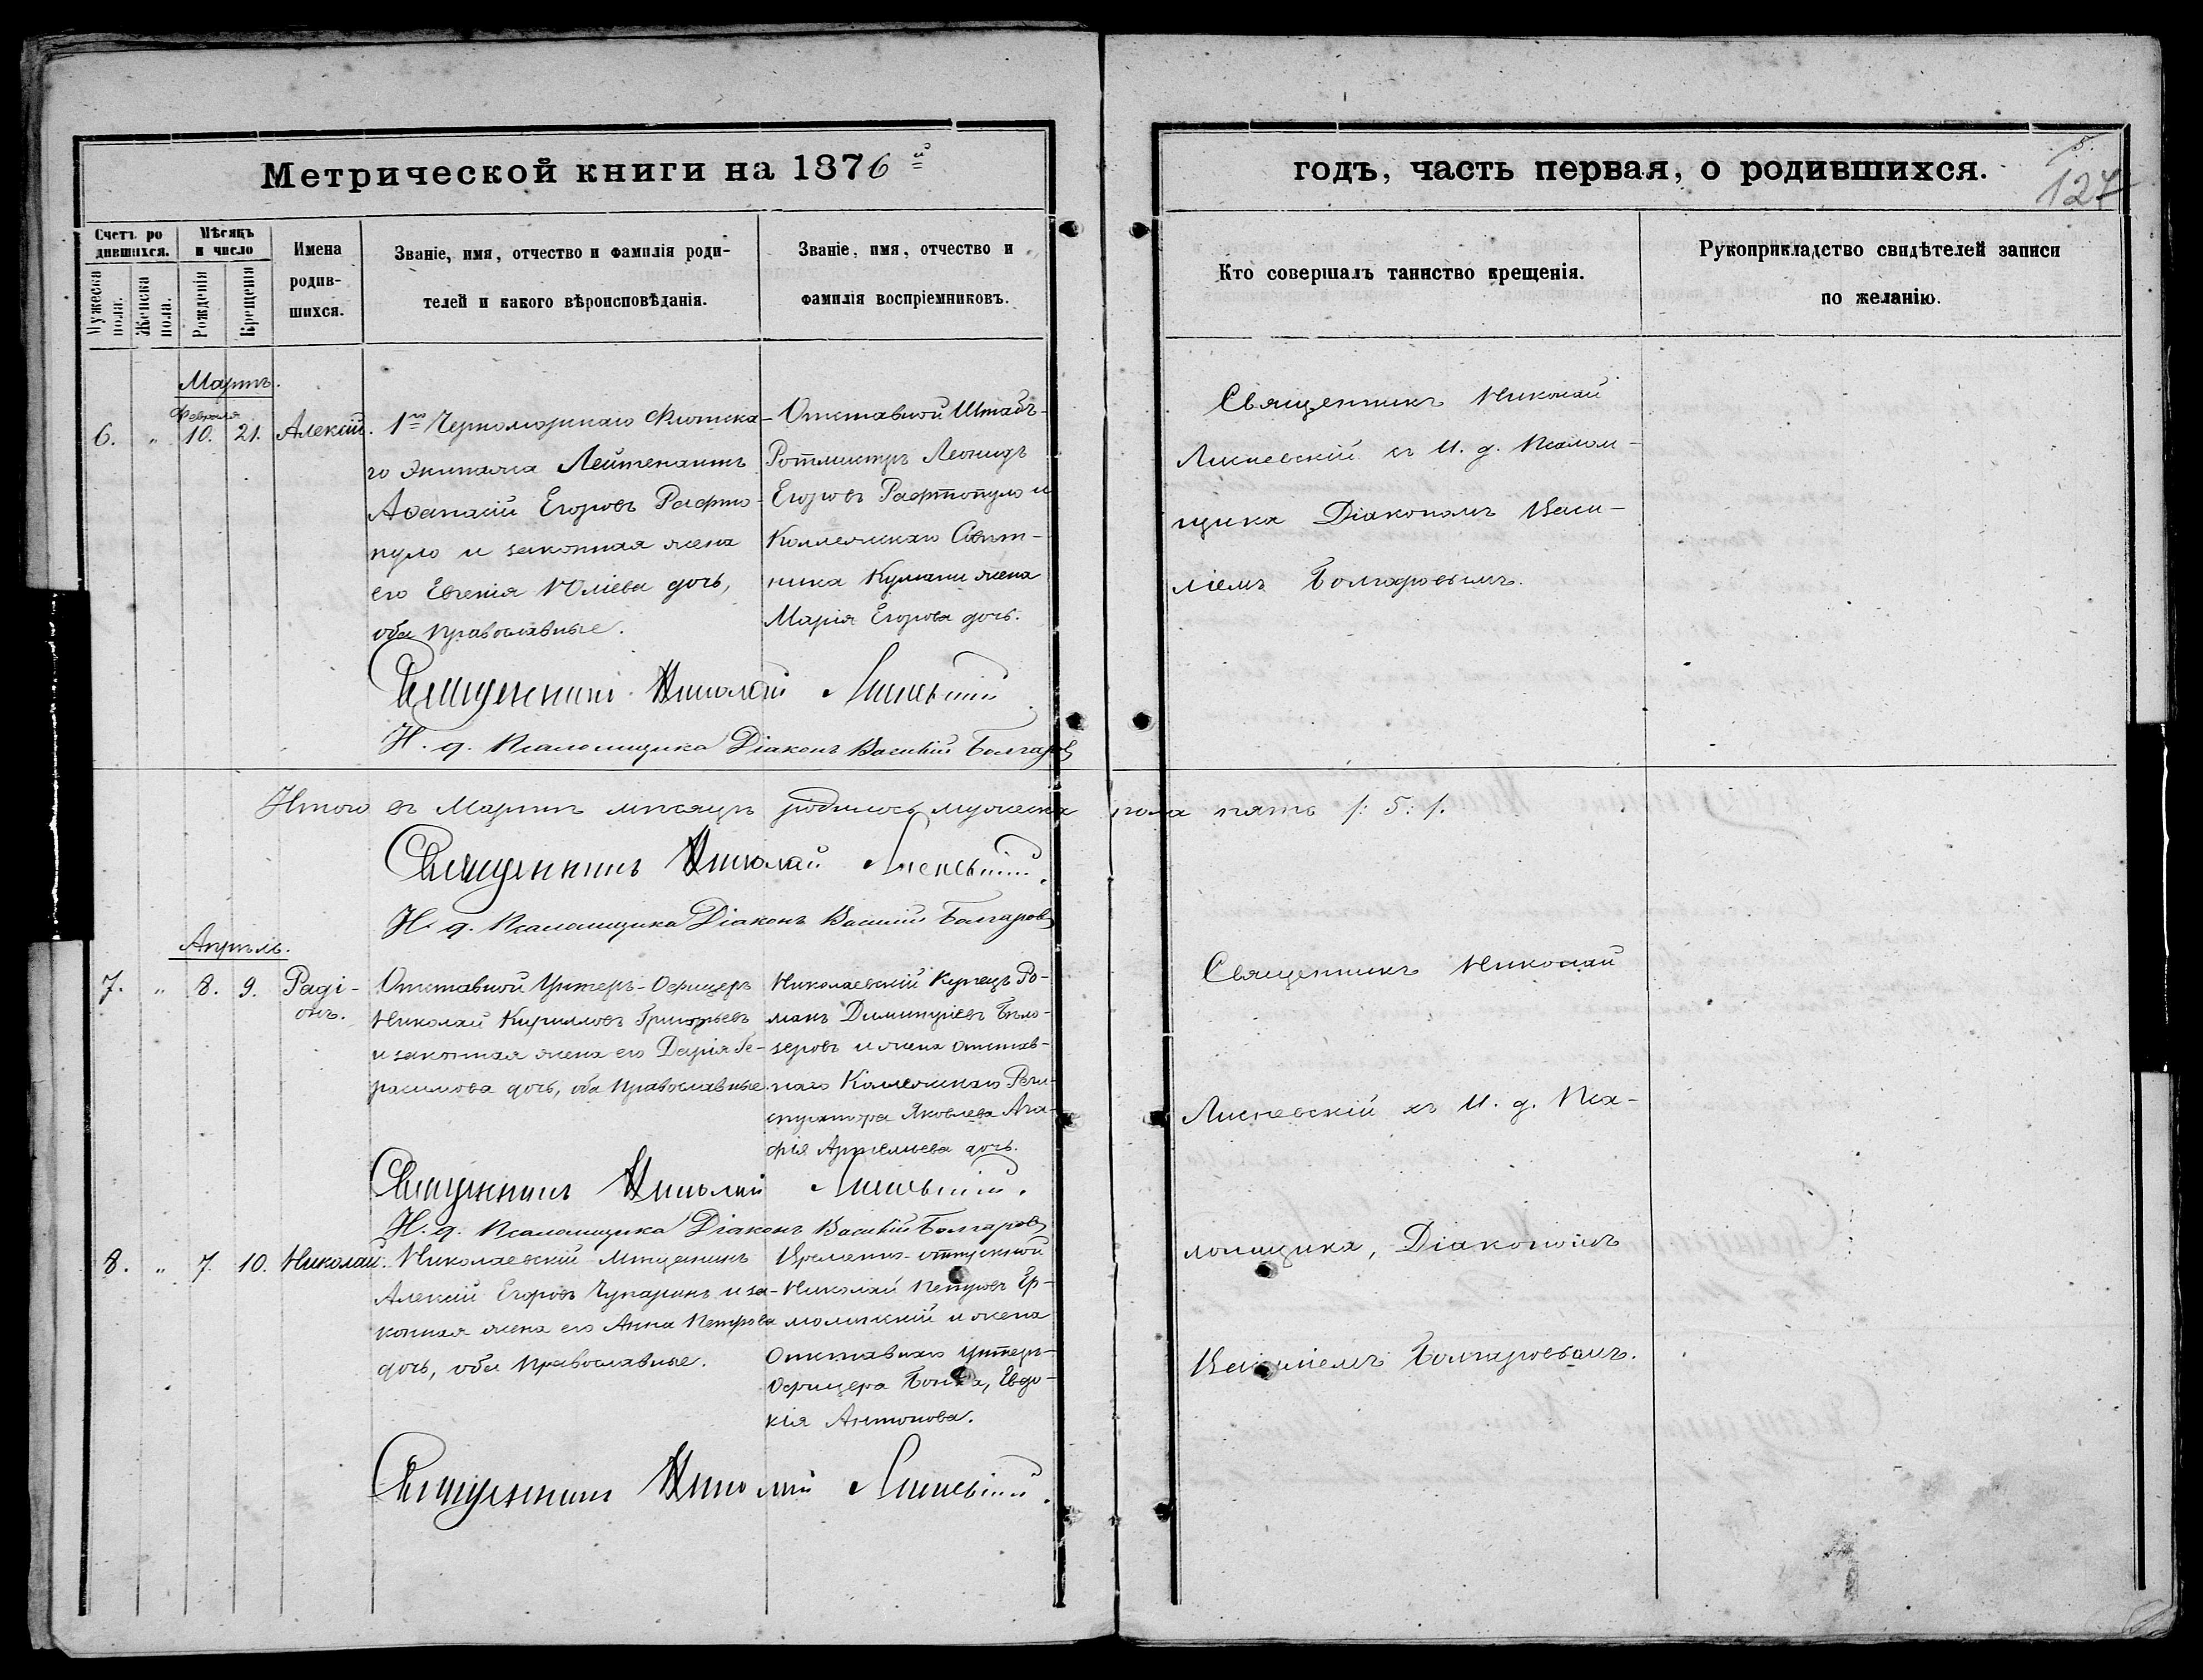 Метрической книги на 1876й
годъ, часть первая, о родившихся.
5.
127
Счетъ ро
дившихся.
Мѣсяцъ
и число
Мужеска
пола.
Женска
пола.
Рожденія
Крещенія
Имена
родив-
шихся.
Званіе, имя, отчество и фамилія роди-
телей и какого вѣроисповѣданія.
Званіе, имя, отчество и
фамилія воспріемниковъ.
Кто совершалъ таинство крещенія.
Рукоприкладство свидѣтелей записи
по желанію.
Мартъ.
Февраля
6. " 10. 21. Алексій.
1го Черноморскаго Флотска-
го экипажа Лейтенантъ
Аѳанасій Егоровъ Рафто-
пуло и законная жена
его Евгенія Юліева дочь,
оба православные.
Отставной Штабъ-
Ротмистръ Леонидъ
Егоровъ Рафтопуло и
Коллежскаго Совѣт-
ника Кумани жена
Марія Егорова дочь.
Священникъ Николай
Лисневскій съ И. д. Псалом-
щика Діакономъ Васи-
ліемъ Болгаровымъ.
Священникъ Николай Лисневскій
И. д. Псаломщика Діаконъ Василій Болгаровъ
Итого въ Мартѣ мѣсяцѣ родилось мужеска пола пять /: 5: /.
Священникъ Николай Лисневскій.
И. д. Псаломщика Діаконъ Василій Болгаровъ
Апрѣль.
7. " 8. 9. Раді-
онъ.
Отставной Унтеръ-Офицеръ
Николай Кирилловъ Григорьевъ
и законная жена его Дарія Ге-
расимова дочь, оба православные.
Николаевскій Купецъ Ро-
манъ Димитріевъ Бѣло-
зеровъ и жена отстав-
наго Коллежскаго Реги-
стратора Яковлева Ага-
фія Артемьева дочь.
Священникъ Николай
Лисневскій съ И. д. Пса-
ломщика, Діакономъ
Василіемъ Болгаровымъ.
Священникъ Николай Лисневскій.
И. д. Псаломщика Діаконъ Василій Болгаровъ
8. " 7. 10. Николай.
Николаевскій Мѣщанинъ
Алексій Егоровъ Чупаринъ и за-
конная жена его Анна Петрова
дочь, оба православные.
Временно-отпускной
Николай Петровъ Ер-
молинскій и жена
Отставнаго Унтеръ-
Офицера Евдо-
кія Антонова.
Священникъ Николай Лисневскій.